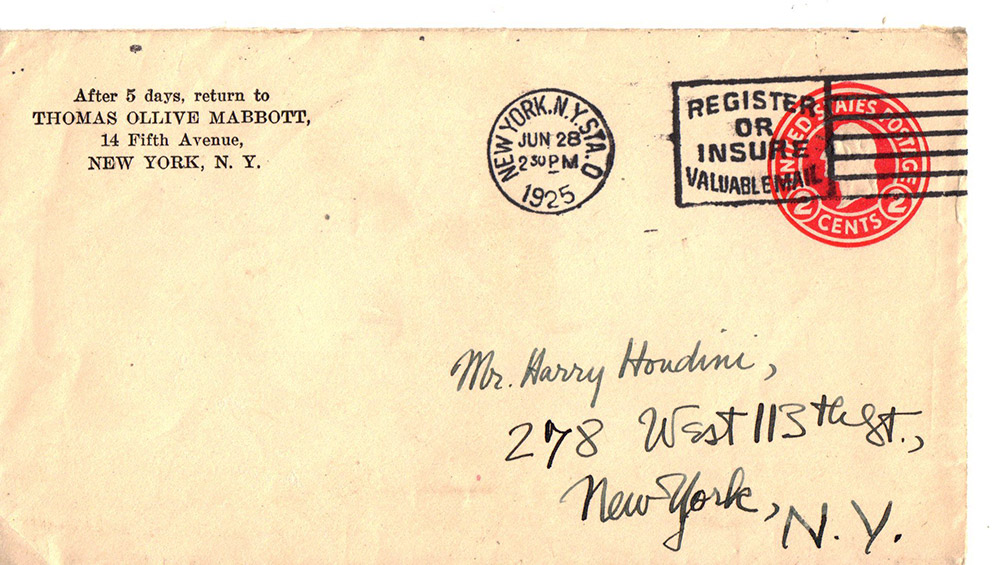 After 5 days, return to
THOMAS OLLIVE MABBOTT,
14 Fifth Avenue,
NEW YORK, N. Y.
NEW YORK, N.Y. STA. O
JUN 28
2 30 PM
1925
REGISTER
OR
INSURE
VALUABLE MAIL
UNITED STATES POSTAGE
2 CENTS 2
Mr. Harry Houdini,
278 West 113th St.,
New York, N.Y.